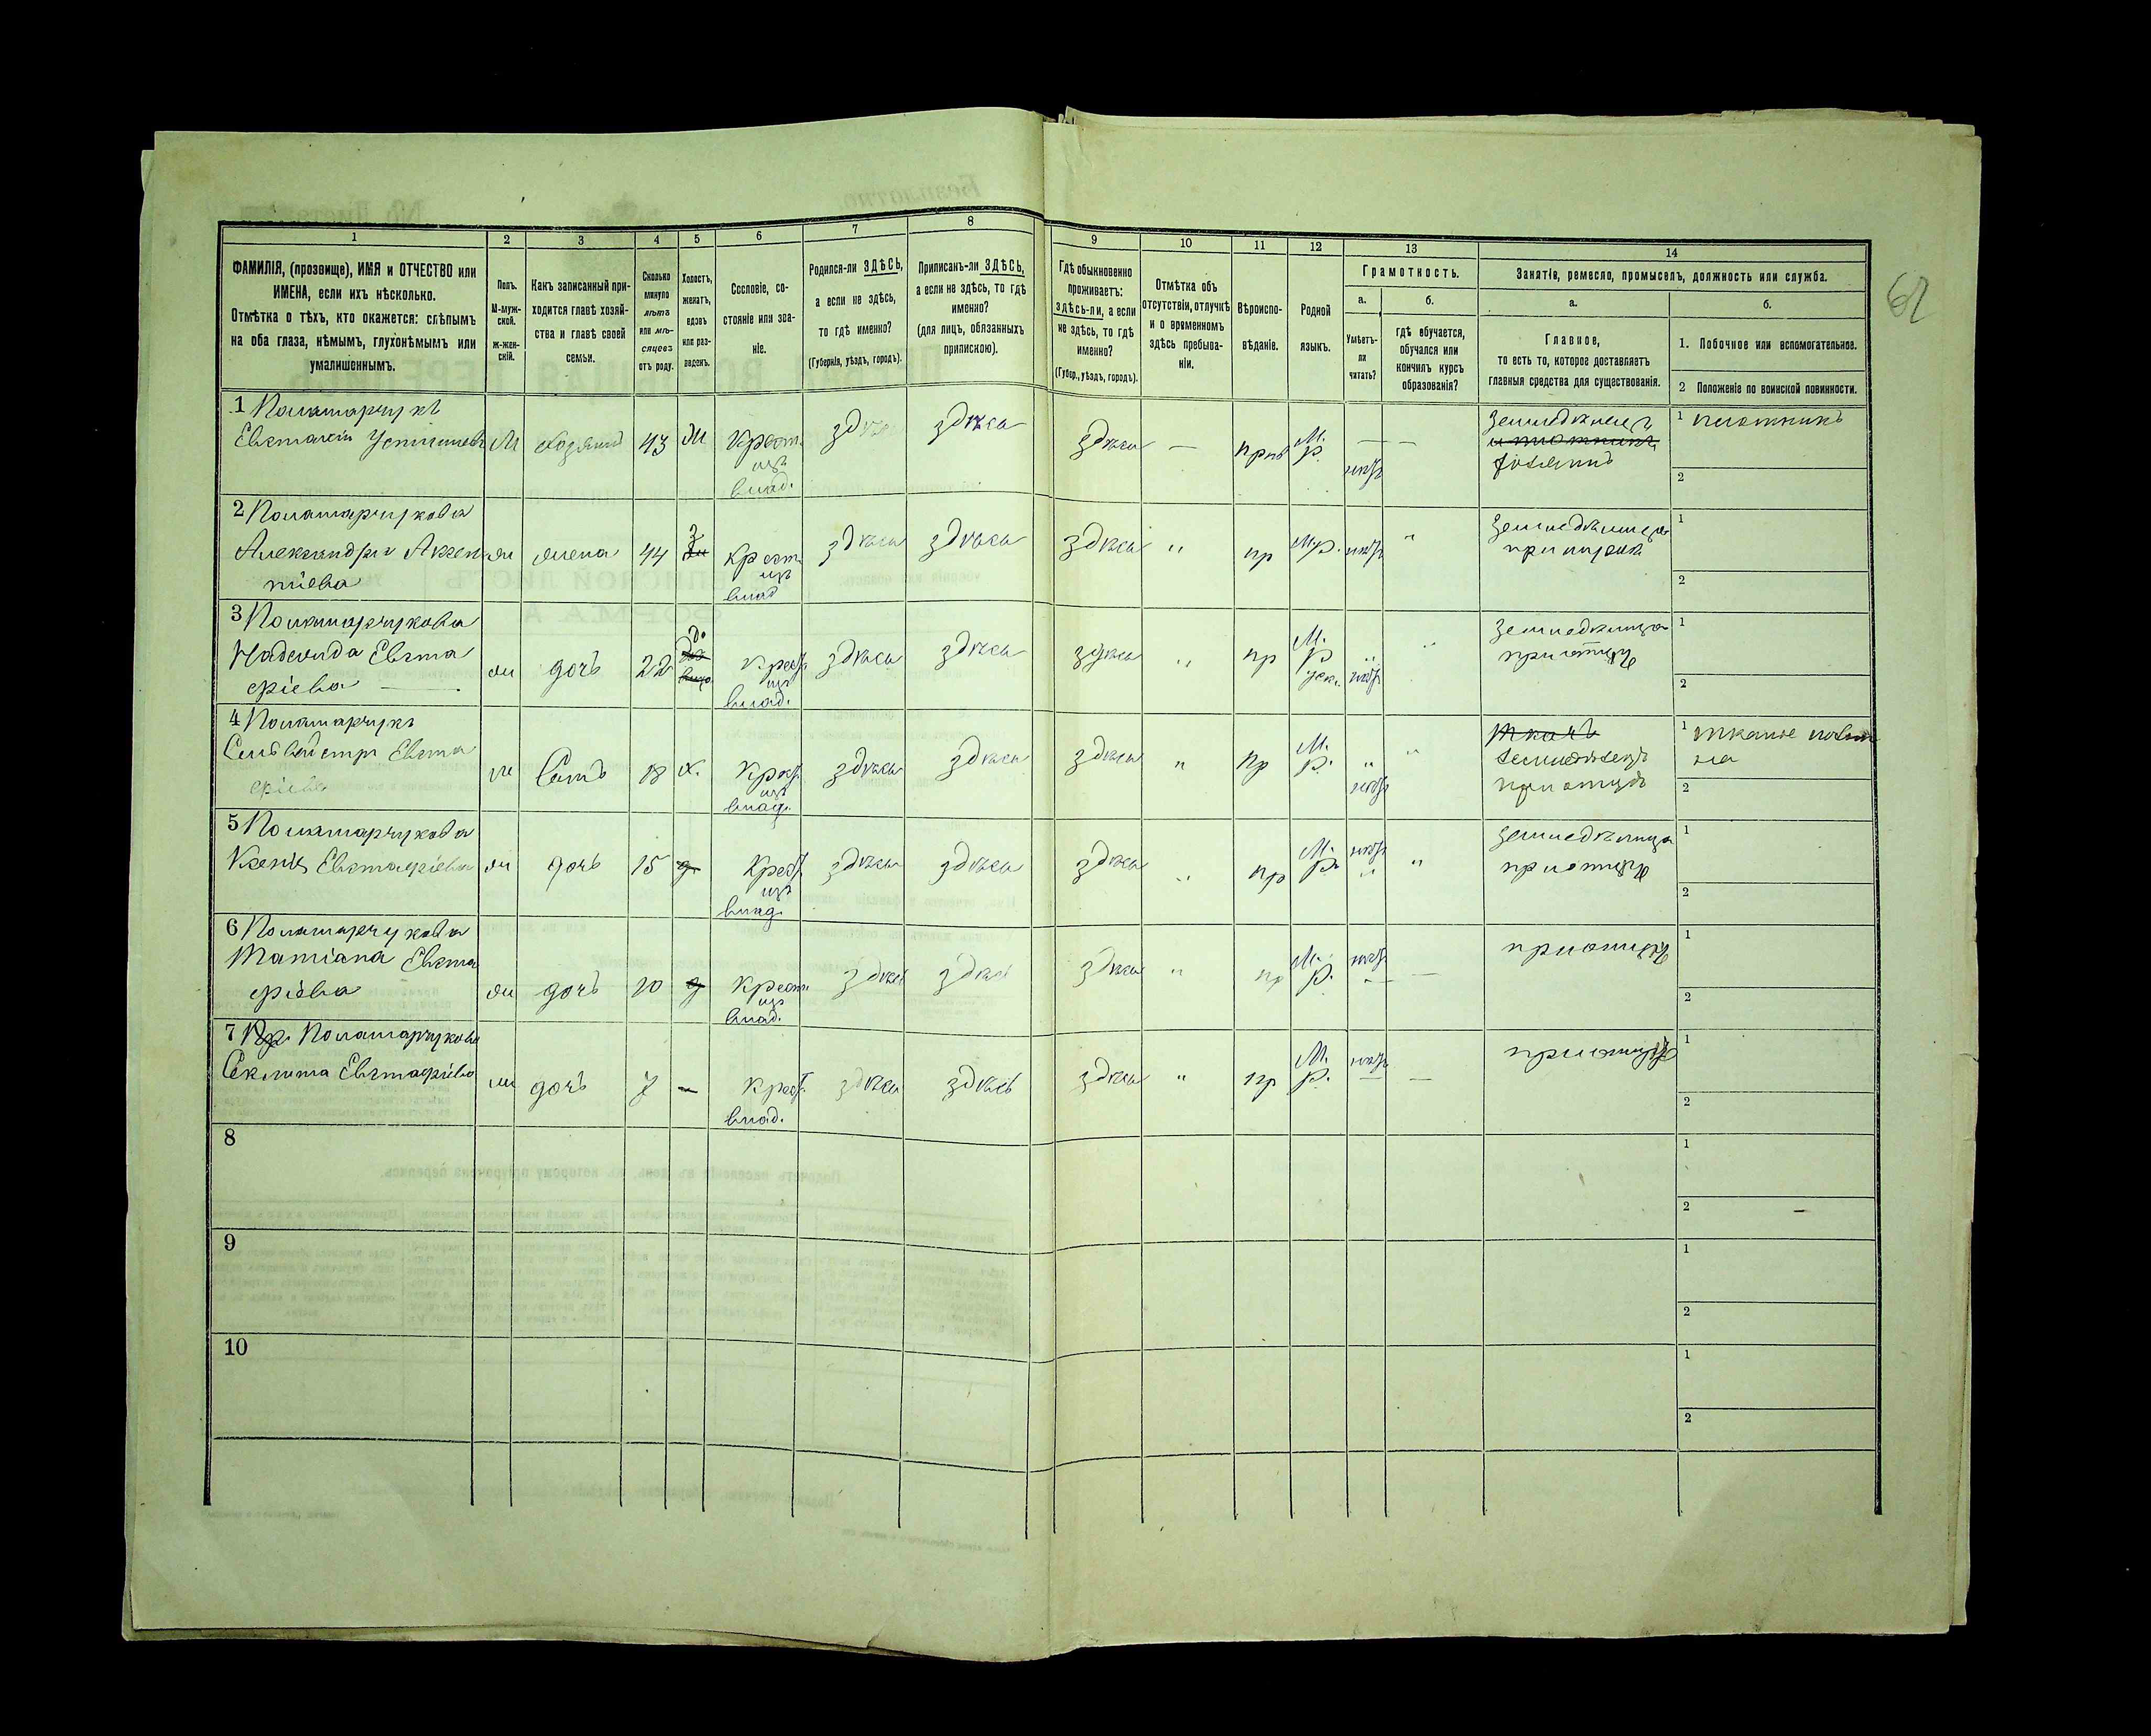 62
1 2 3 4 5 6 7 8 9 10 11 12 13 14
ФАМИЛІЯ, (прозвище), ИМЯ и ОТЧЕСТВО или
ИМЕНА, если ихъ нѣсколько.
Отмѣтка о тѣхъ, кто окажется: слѣпымъ
на оба глаза, нѣмымъ, глухонѣмымъ или
умалишеннымъ.
Полъ.
М-муж-
ской.
ж-жен-
скій.
Какъ записанный при-
ходится главѣ хозяй-
ства и главѣ своей
семьи.
Сколько
минуло
лѣтъ
или мѣ-
сяцевъ
отъ роду.
Холостъ,
женатъ,
вдовъ
или раз-
веденъ.
Сословіе, со-
стояніе или зва-
ніе.
Родился-ли ЗДѢСЬ,
а если не здѣсь,
то гдѣ именно?
(Губернія, уѣздъ, городъ).
Приписанъ-ли ЗДѢСЬ,
а если не здѣсь, то гдѣ
именно?
(для лицъ, обязанныхъ
припискою).
Гдѣ обыкновенно
проживаетъ:
здѣсь-ли, а если
не здѣсь, то гдѣ
именно?
(Губер., уѣздъ, городъ).
Отмѣтка объ
отсутствіи, отлучкѣ
и о временномъ
здѣсь пребыва-
ніи.
Вѣроиспо-
вѣданіе.
Родной
языкъ.
Грамотность.
а.
Умѣетъ-
ли
читать?
б.
гдѣ обучается,
обучался или
кончилъ курсъ
образованія?
Занятіе, ремесло, промыселъ, должность или служба.
а.
Главное,
то есть то, которое доставляетъ
главныя средства для существованія.
б.
1. Побочное или вспомогательное.
2 Положеніе по воинской повинности.
1 Паламарчукъ
Евстафій М хозяинъ 43 ж Крест. здѣсь здѣсь здѣсь — прав М. Р. — — Земледѣлецъ 1 плотникъ
изъ
влад. хозяинъ
2
2 Паламарчукова
Александра Авксен ж жена 44 З Крест. здѣсь здѣсь здѣсь " пр М.Р. " Земледѣлица 1
тіева изъ
влад 2
3 Паламарчукова
Надежда Евста ж дочь 22 д. Крест. здѣсь здѣсь здѣсь " пр М. Р. " Земледѣлица 1
фіева изъ при отцѣ
влад. 2
4 Паламарчукъ
Сильвестръ Евста м Сынъ 18 х. Крест. здѣсь здѣсь здѣсь " пр М. Р. " " ткачъ 1 тканье полот
фіевъ изъ земледѣлецъ на
влад. при отцѣ 2
5 Паламарчукова
Ксенія Евстафіева ж дочь 15 д Крест. здѣсь здѣсь здѣсь " пр М. Р. " " Земледѣлица 1
изъ при отцѣ
влад. 2
6 Паламарчукова
Татіана Евста ж дочь 10 д Крест. здѣсь здѣсь здѣсь " пр М. Р. — — при отцѣ 1
фіева изъ
влад. 2
7 Паламарчукова
Секлита Евстафіева ж дочь 7 — Крест. здѣсь здѣсь здѣсь " пр М. Р. — — при отцѣ 1
влад. 2
8 1
2
9 1
2
10 1
2